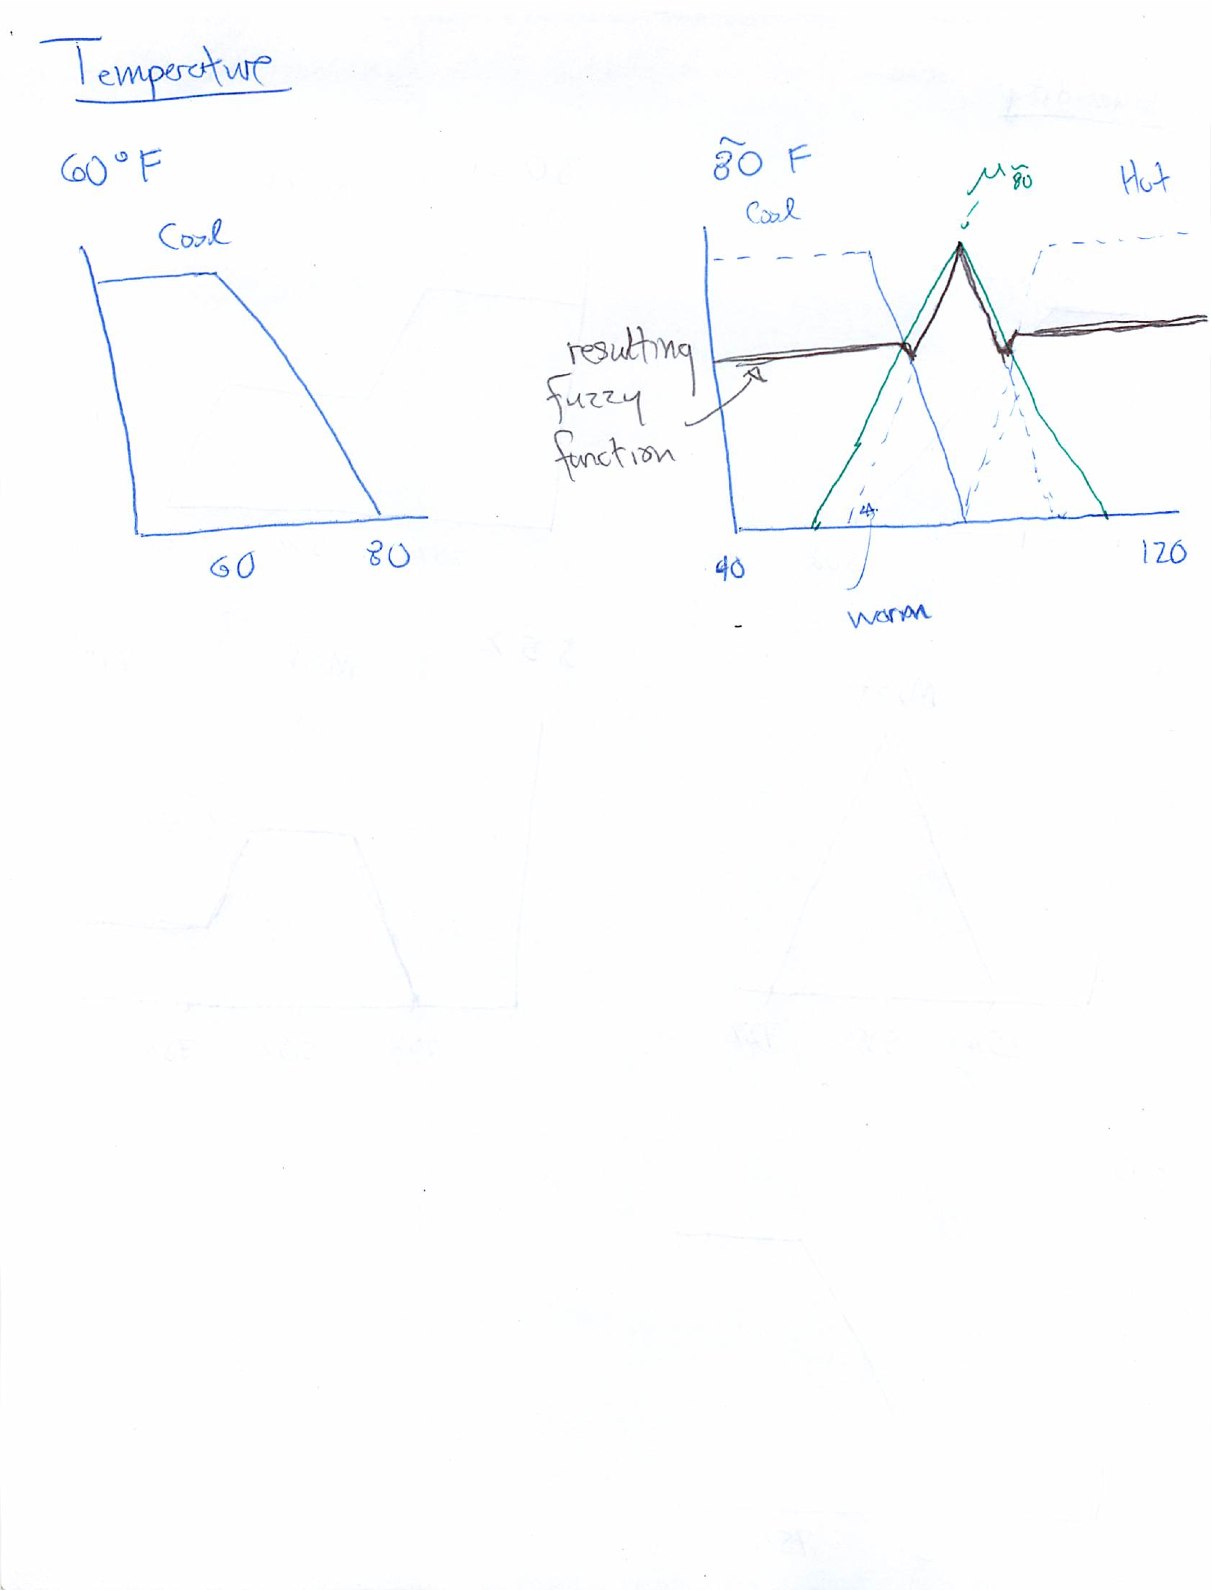 Temperature
60°F
Cool
60
80
8̃0 F
Cool
μ8̃0
Hot
resulting
fuzzy
function
40
120
warm